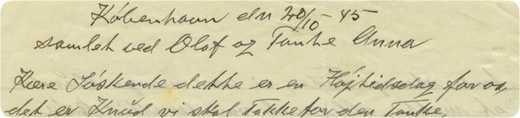 København den 20/10-45
samlet ved Olaf og Tanke Anna
Kære Søskende dette er en Højtidsdag for os
det er Knud vi skal Takke for den Tanke,